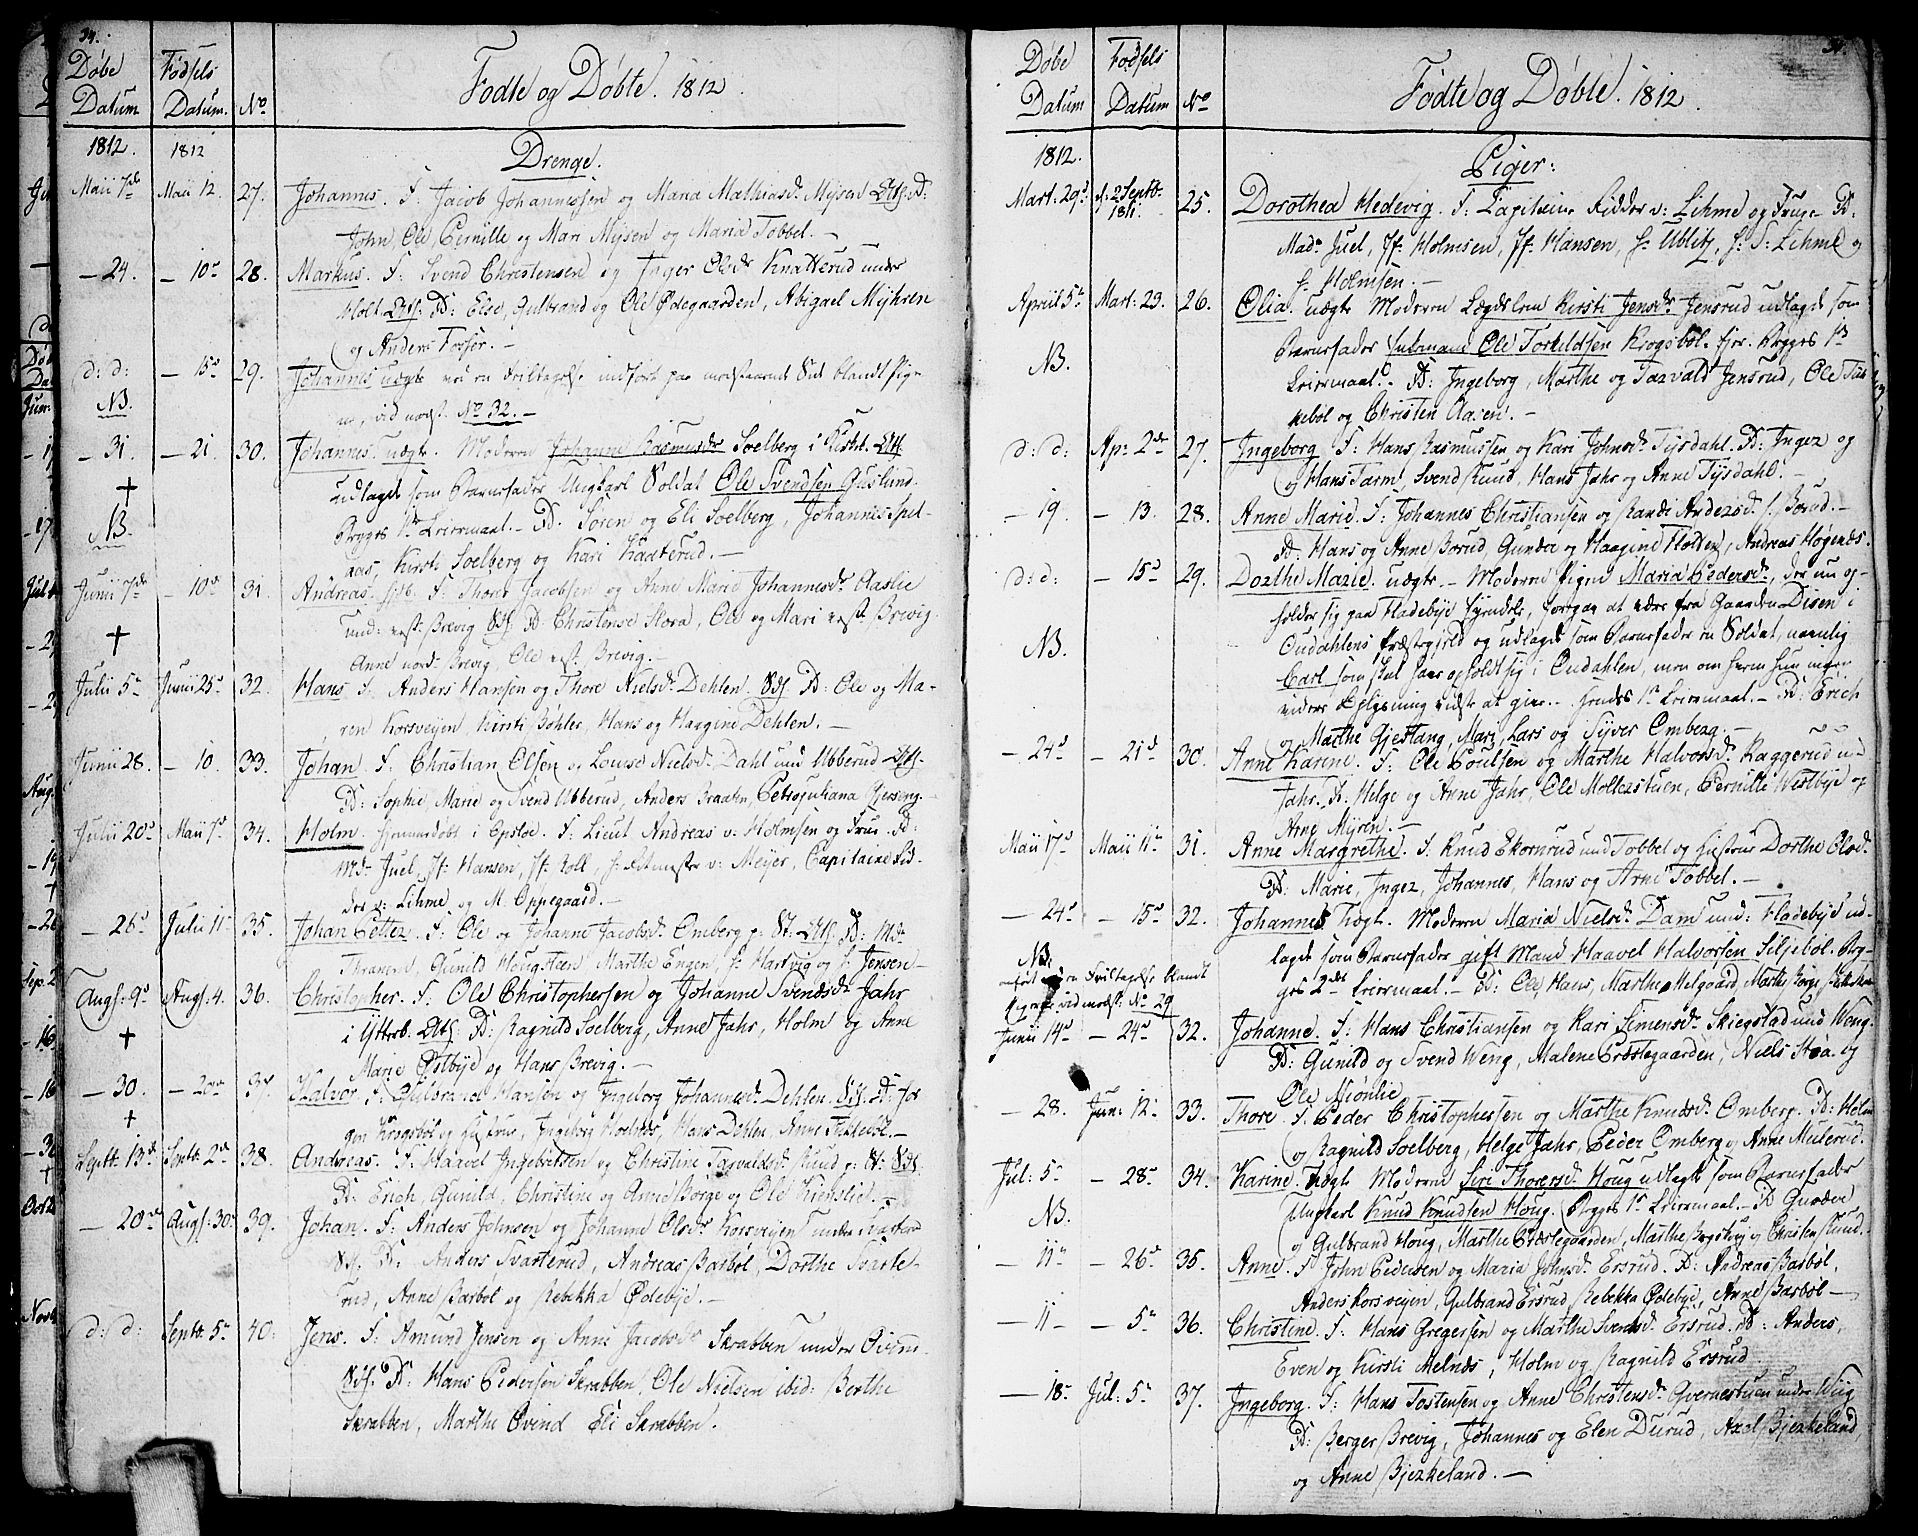 34.
Døbe Fødsels
Datum Datum. No Fødte og Døbte. 1812.
1812. 1812 Drenge.
Maii 7de Maii 12 27. Johannes. F. Jacob Johannessen og Maria Mathiasd. Mysen
John, Ole, Pernille og Mari Mysen og Maria Tobbel. —
— 24. — 10de 28. Markus. F: Svend Christensen og Inger Olsdr Knatterud under
Holt. D: Else, Gulbrand og Ole Ødegaarden, Abigael Myhren
og Anders Fossør. —
d: d: — 15de 29. Johannes uægte ved en Feiltagelse indført paa modstaaende Side blandt Pige-
NB. ne, vid næst. No 32. —
— 31. — 21. 30. Johannes. uægte. Moderen Johanne Rasmusdr Soelberg i
+ udlagde som Barnefader Ungkarl Soldat Ole Svendsen Guslund.
NB. Begges 1te Leiermaal. — D. Søren og Eli Soelberg, Johannes Spel-
aas, Kirsti Soelberg og Kari Kaaterud. —
Junii 7de — 10de 31. Andreas. F. Thore Jacobsen og Anne Marie Johannesdr Aaslie
+ und: vest: Brevig D. Christense Stora, Ole og Mari vest Brevig.
Anne nord: Brevig, Ole vest. Brevig. —
Julii 5te Junii 25de 32. Hans F. Anders Hansen og Thore Nielsdr Dehlen. D: Ole og Ma-
ren Korsveyen, Kirsti Bøhler, Hans og Haagine Dehlen. —
Junii 28. — 10. 33. Johan F. Christian Olsen og Lovise Nielsdr Dahl und Ubberud
D: Sophie, Marie og Svend Ubberud, Anders Braaten, Petrojuliana Bjerseng. —
Julii 20de Maii 7de 34. Holm hjemmedøbt i Opsloe. F: Lieut Andreas v: Holmsen og Frue. D:
Md. Juel, Jf: Hansen, Jf. Roll, H: Ritmester v: Meyer, Capitaine Rid-
der v: Lihme og M. Oppegaard. —
— 26de Julii 11te 35. Johan Petter. F: Ole og Johanne Jacobsdr Omberg D: Md.
Thranem, Gunild Hougsteen Marthe Engen, H: Hartvig og H: Jensen —
Augs: 9de Augs: 4. 36. Christopher. F: Ole Christophersen og Johanne Svendsdr Jahr
+ i Ytterb. D: Ragnild Soelberg, Anne Jahr, Holm og Anne
Marie Østbye og Hans Brevig. —
— 30. 37. Halvor F. Gulbrand Hansen og Ingeborg Johannesdr Dehlen. D:
+ Krogsbøl og Hustrue, Ingeborg Hoelnæs, Hans Dehlen, Anne
Septb: 13de Septb: 2de 38. Andreas. F. Haavel Ingebretsen og Christine Tarvaldsdr Ruud
D: Erich, Gunild, Christine og Anne Børge og Ole Kienslie. —
— 20de Augs: 30te 39. Johan. F: Anders Johnsen og Johanne Olsdr Korsveyen under
D: Anders Svarterud, Andreas Barbøl, Dorthe Svarte-
rud, Anne Barbøl og Rebekka Ødebye. —
d: d: Septb: 5te 40: Jens. F: Amund Jensen og Anne Jacobsdr Skrabben under Øvind.
D: Hans Pedersen Skrabben, Ole Nielsen ibid: Berthe
Skrabben, Marthe Øvind Eli Skrabben.
34.
Døbe Fødsels
Datum Datum No Fødte og Døbte. 1812.
1812. Piger:
Mart: 29de d: 2 Septb. 1811. 25. Dorothea Hedevig. F: Capitaine Ridder v: Lihme og Frue. D:
Mad. Juel, Jf: Holmsen, Jf. Hansen, H: Ublitz, H: F: Lihme og
H: Holmsen. —
April 5te Mart: 23. 26. Olia. uægte Moderen Kirsti Jensdr Jensrud udlagde som
Barnefader Ole Torkildsen Krogsbøl. Begges 1te
NB. Leiermaal. D: Ingeborg, Marthe og Tarvald Jensrud, Ole Tus-
kebøl og Christen Aaseri. —
d: d: Ap: 2de 27. Ingeborg F: Hans Rasmussen og Kari Johnsdr Tysdahl. D: Inger og
og Hans Tarm, Svend Ruud, Hans Jahr og Anne Tysdahl. —
— 19. — 13. 28. Anne Marie. F: Johannes Christiansen og Randi Andersdr Borud. —
D: Hans og Anne Borud, Gunder og Haagine Fløtten, Andreas Høgenæs.
d: d: — 15de 29. Dorthe Marie. uægte. — Moderen Pigen Maria Pedersdr, der nu op-
holder sig paa Fladebye foregav at være fra Gaarden Disen i
NB. Oudahlens Præstegield og udlagde som Barnefader en Soldat, navnlig
Carl som skal have opholdt sig i Oudahlen, men om hvem hun ingen
videre Oplysning vidste at give. — hendes 1te Leiermaal. — D: Erich
og Marthe Gjestang, Mari, Lars og Syver Omberg. —
— 24de — 21de 30. Anne Karine. F: Ole Poulsen og Marthe Halvorsdr Raggerud und
Jahr. D. Helge og Anne Jahr, Ole Molterstuen, Pernille Westbye og
Arne Myren. —
Maii 17de Maii 11te 31. Anne Margrethe. F. Knud Ekornrud und Tobbel og Hustrue Dorthe Olsdr
D: Marie, Inger, Johannes, Hans og Arne Tobbel. —
— 24de — 15de 32. Johannes Uægt. Moderen Maria Nielsdr Dam und: Fladebye ud-
NB. lagde som Barnefader gift Mand Haavel Halvorsen Siljebøl. Beg-
anført ved en Feiltagelse blandt ges 2det Leiermaal — D: Ole, Hans, Marthe Helgaard, Marthe Børge,
Pigene vid næst: No 29
Junii 14de — 24de 32. Johanne. F: Hans Christiansen og Kari Simensdr Skiegstad und Weng.
D: Gunild og Svend Weng, Malene Præstegaarden, Niels Støa og
Ole Nionlie
— 28. Jun: 12te 33. Thore F. Peder Christophersen og Marthe Knudsdr Omberg. D: Holm
og Ragnild Soelberg, Helge Jahr, Peder Omberg og Anne Mulerud.
Jul: 5te — 28de 34. Karine. Uægt Moderen Siri Thoresdr Houg udlagde som Barnefader
NB. Ungkarl Knud Knudsen Houg. Begges 1te Leiermaal. — D. Gunder
og Gulbrand Houg, Marthe Præstegaarden, Marthe og Christen Ruud.
— 11te — 26de 35. Anne. F John Pedersen og Maria Johnsdr Ersrud. D: Andreas Barbøl,
Anders Korsveyen, Gulbrand Ersrud, Rebekka Ødebye, Anne Barbøl —
— 11 — — 5te 36. Christine. F: Hans Gregersen og Marthe Svendsdr Ersrud. D: Anders,
Even og Kirsti Melnæs, Holm og Ragnild Ersrud
— 18de Jul: 5te 37. Ingeborg. F: Hans Tostensen og Anne Christensdr Gvernestuen under Wiig
D: Berger Brevig, Johannes og Elen Durud, Axel Bjerkeland,
og Anne Bjerkeland. —